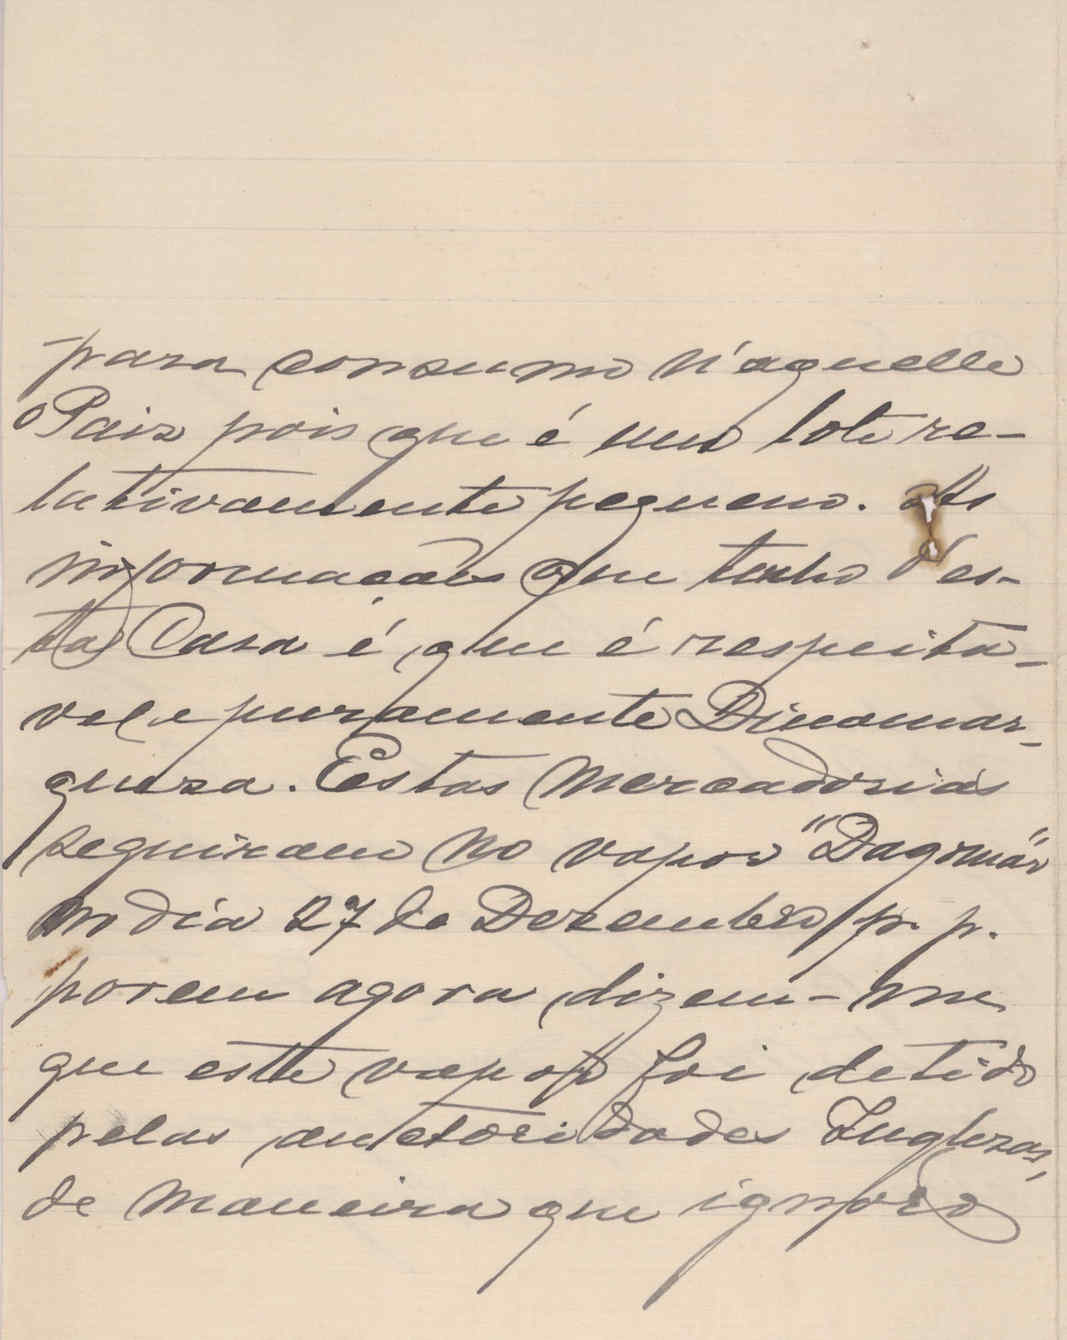 para consumo n'aquelle
Paiz pois que é um lote re-
lativamente pequeno. As
informações que tenho d'es-
ta Casa é que é respeita-
vel e puramente Dinamar-
queza. Estas mercadorias
seguiram no vapor "Dagmár"
no dia 27 de Dezembro p. p.
porem agora dizem-me
que este vapor foi detido
pelas auctoridades Inglezas,
de maneira que ignoro